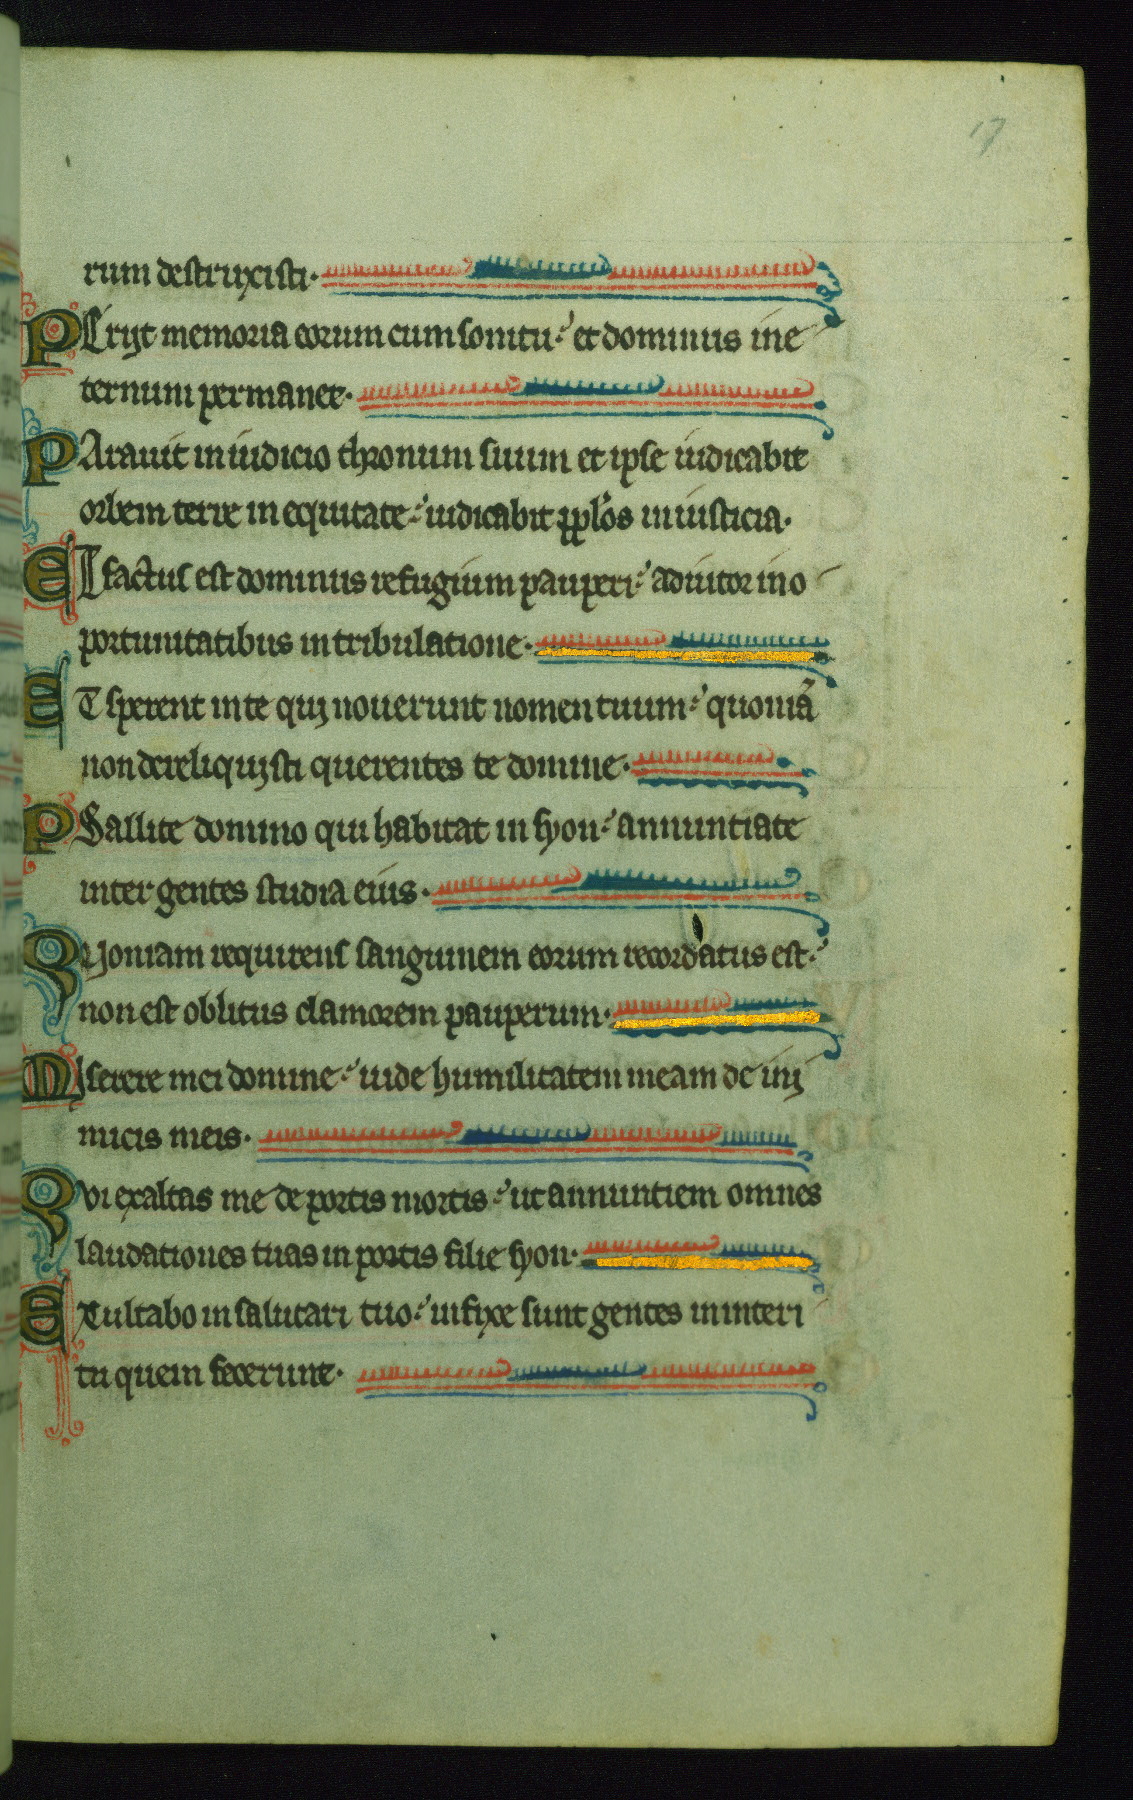 17
rum destruxisti.
PEriit memoria eorum cum sonitu: et dominus in e
ternum permanet.
PArauit in iudicio thronum suum et ipse iudicabit
orbem terre in equitate: iudicabit ppl'os in iusticia.
ET factus est dominus refugium pauperi: adiutor in o
portunitatibus in tribulatione.
ET sperent in te qui nouerunt nomen tuum: quoniã
non dereliquisti querentes te domine.
PSallite domino qui habitat in syon: annuntiate
inter gentes studia eius.
Quoniam requirens sanguinem eorum recordatus est:
non est oblitus clamorem pauperum.
Miserere mei domine: uide humilitatem meam de ini
micis meis.
Qvi exaltas me de portis mortis: ut annuntiem omnes
laudationes tuas in portis filie syon.
EXultabo in salutari tuo: infixe sunt gentes in interi
tu quem fecerunt.